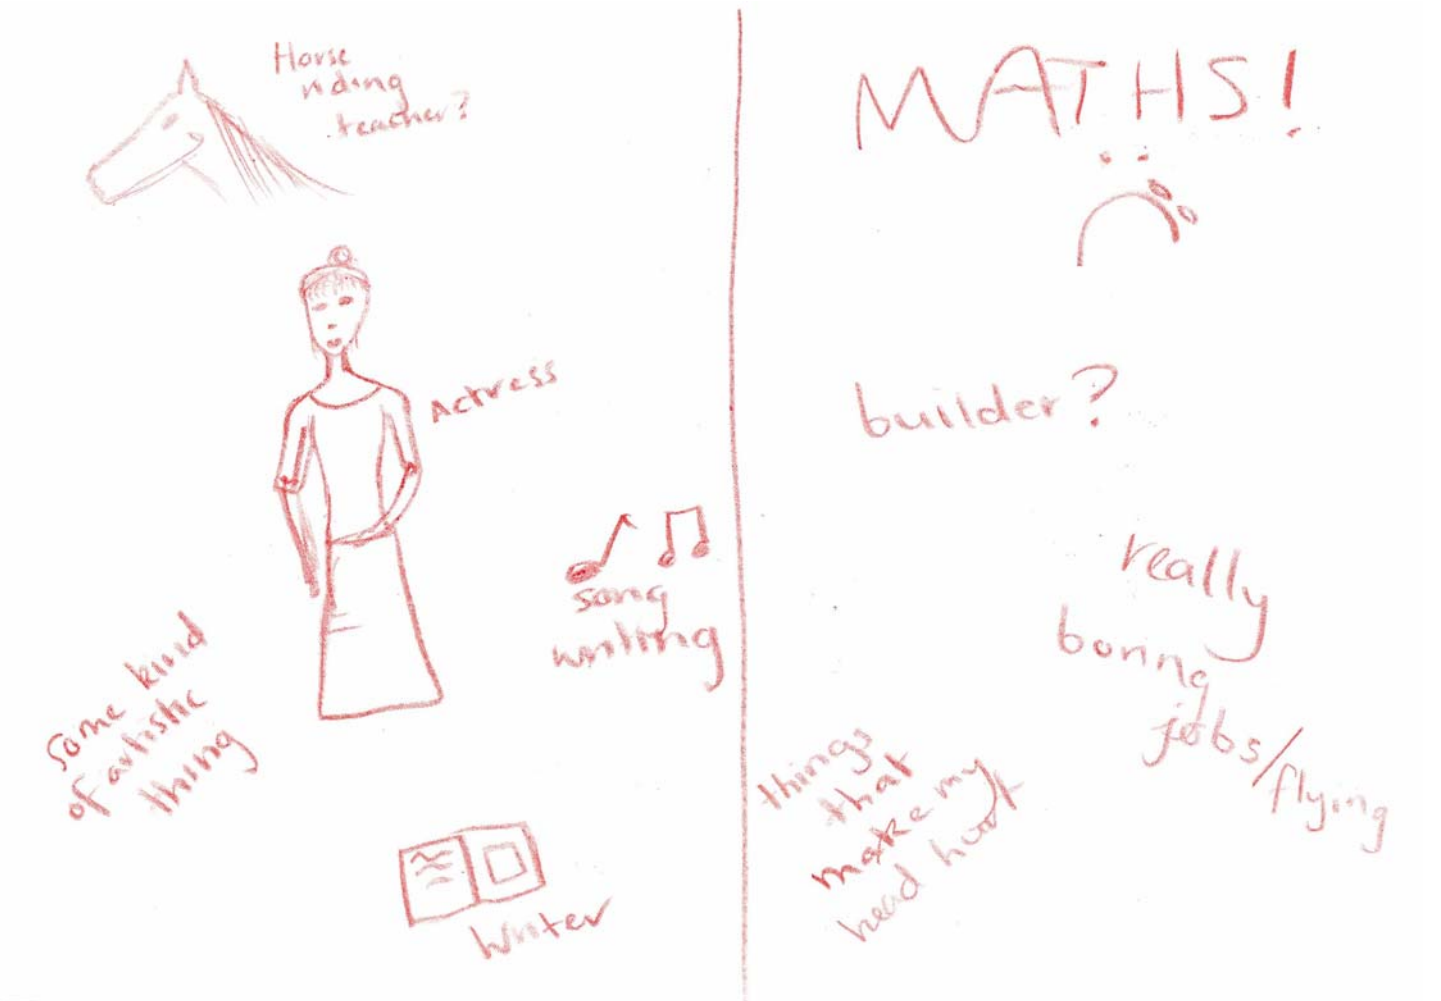 Horse
riding
teacher?
Actress
song
writing
some kind
of artistic
thing
Writer
MATHS!
builder?
really
boring
jobs/flying
things
that
make my
head hurt